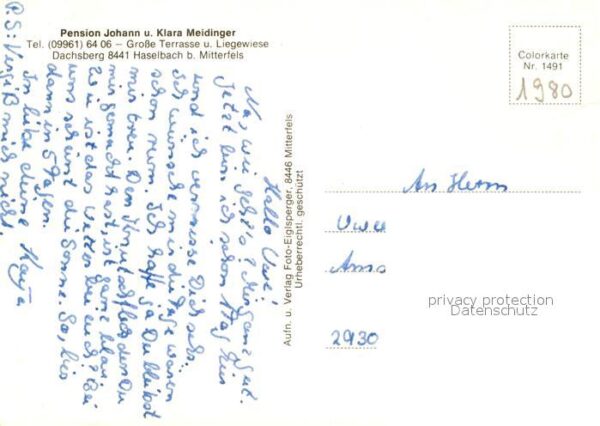 Pension Johann u. Klara Meidinger
Tel. (09961) 64 06 – Große Terrasse u. Liegewiese
Dachsberg 8441 Haselbach b. Mitterfels
Hallo Uwe!
Na, wie geht's? Mir ganz gut.
Jetzt bin ich schon 1 Tag hier
und ich vermisse Dich sehr.
Ich wünsche mir die Tage wären
schon rum. Ich hoffe ja Du bleibst
mir treu. Den Knutschfleck den Du
mir gemacht hast, ist ganz blau.
Wie ist das Wetter bei euch? Bei
uns scheint die Sonne. So, bis
dann in 5 Tagen.
In Liebe deine Katja
P.S: Vergiß mich nicht.
Aufn. u. Verlag Foto-Eiglsperger, 8446 Mitterfels
Urheberrechtl. geschützt
Colorkarte
Nr. 1491
1980
An Herrn
Uwe
2930
privacy protection
Datenschutz